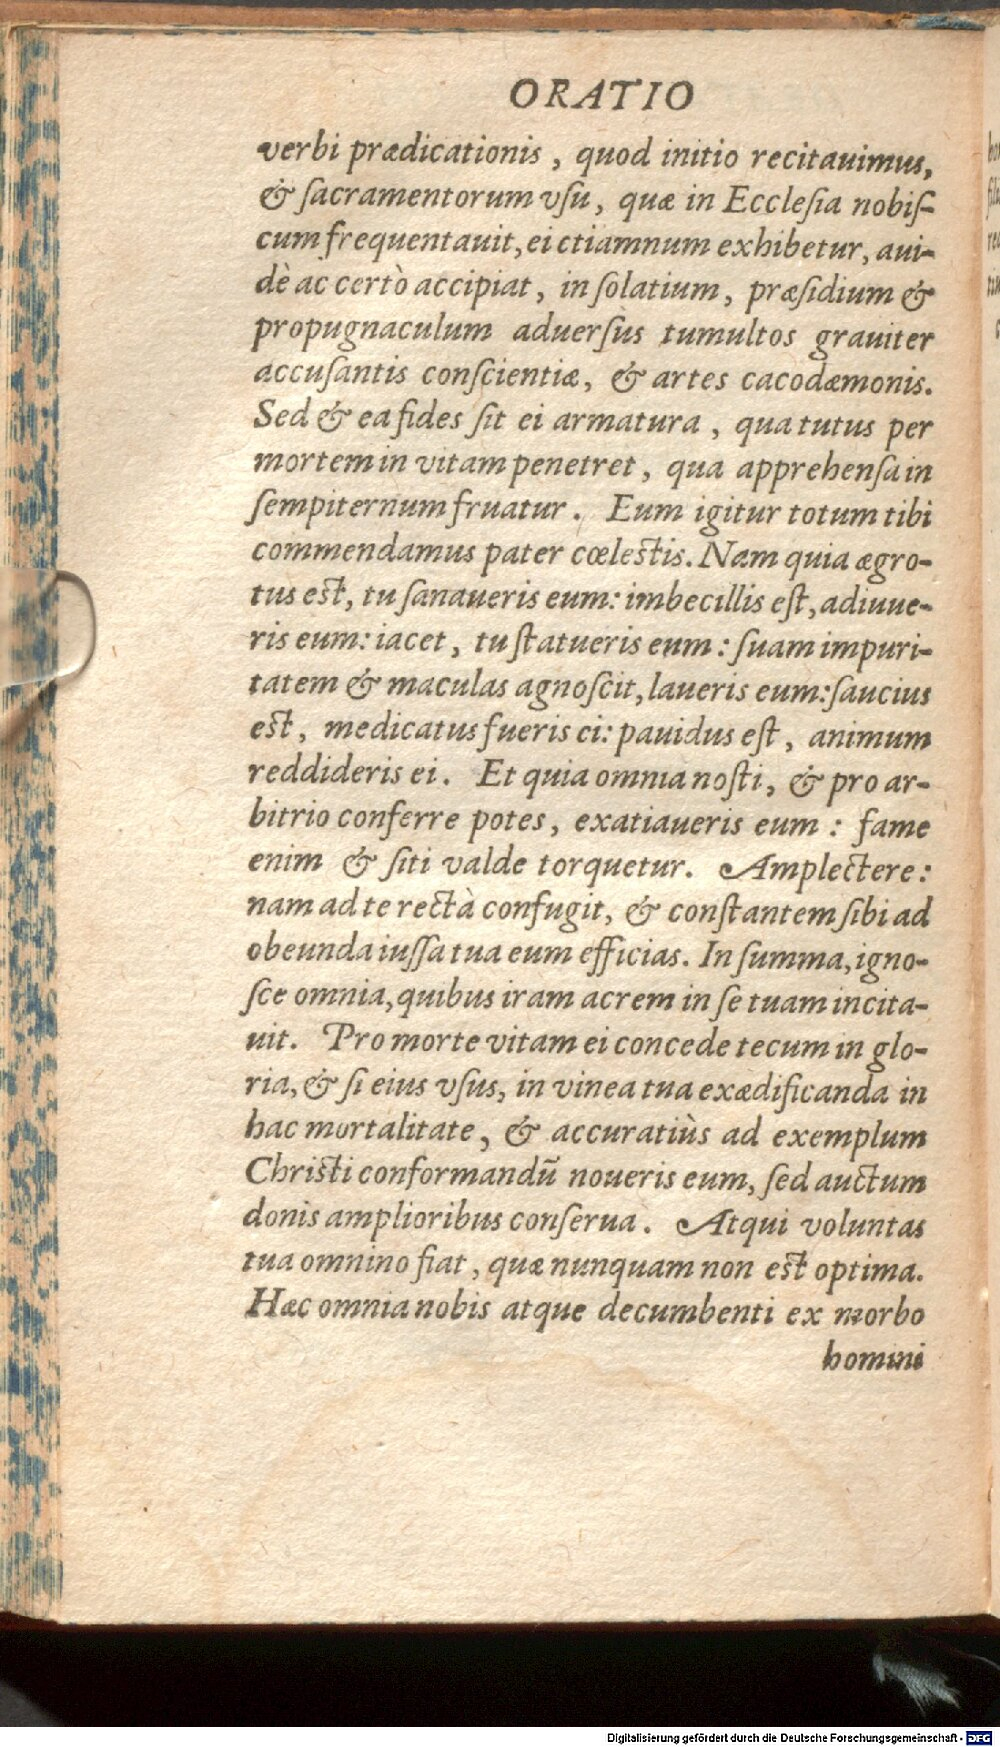 ORATIO
verbi prædicationis, quod initio recitauimus,
& ſacramentorum vſu, quæ in Eccleſia nobiſ-
cum frequentauit, ei etiamnum exhibetur, aui-
dè ac certò accipiat, in ſolatium, præſidium &
propugnaculum aduerſus tumultos grauiter
accuſantis conſcientiæ, & artes cacodæmonis.
Sed & ea fides ſit ei armatura, qua tutus per
mortem in vitam penetret, qua apprehenſa in
ſempiternum fruatur. Eum igitur totum tibi
commendamus pater cœleſtis. Nam quia ægro-
tus eſt, tu ſanaueris eum: imbecillis eſt, adiuue-
ris eum: iacet, tu ſtatueris eum: ſuam impuri-
tatem & maculas agnoſcit, laueris eum: ſaucius
eſt, medicatus fueris ei: pauidus eſt, animum
reddideris ei. Et quia omnia noſti, & pro ar-
bitrio conferre potes, exatiaueris eum: fame
enim & ſiti valde torquetur. Amplectere:
nam ad te rectà confugit, & conſtantem ſibi ad
obeunda iuſſa tua eum efficias. In ſumma, igno-
ſce omnia, quibus iram acrem in ſe tuam incita-
uit. Pro morte vitam ei concede tecum in glo-
ria, & ſi eius vſus, in vinea tua exædificanda in
hac mortalitate, & accuratiùs ad exemplum
Chriſti conformandū noueris eum, ſed auctum
donis amplioribus conſerua. Atqui voluntas
tua omnino fiat, quæ nunquam non eſt optima.
Hæc omnia nobis atque decumbenti ex morbo
homini
Digitalisierung gefördert durch die Deutsche Forschungsgemeinschaft - DFG